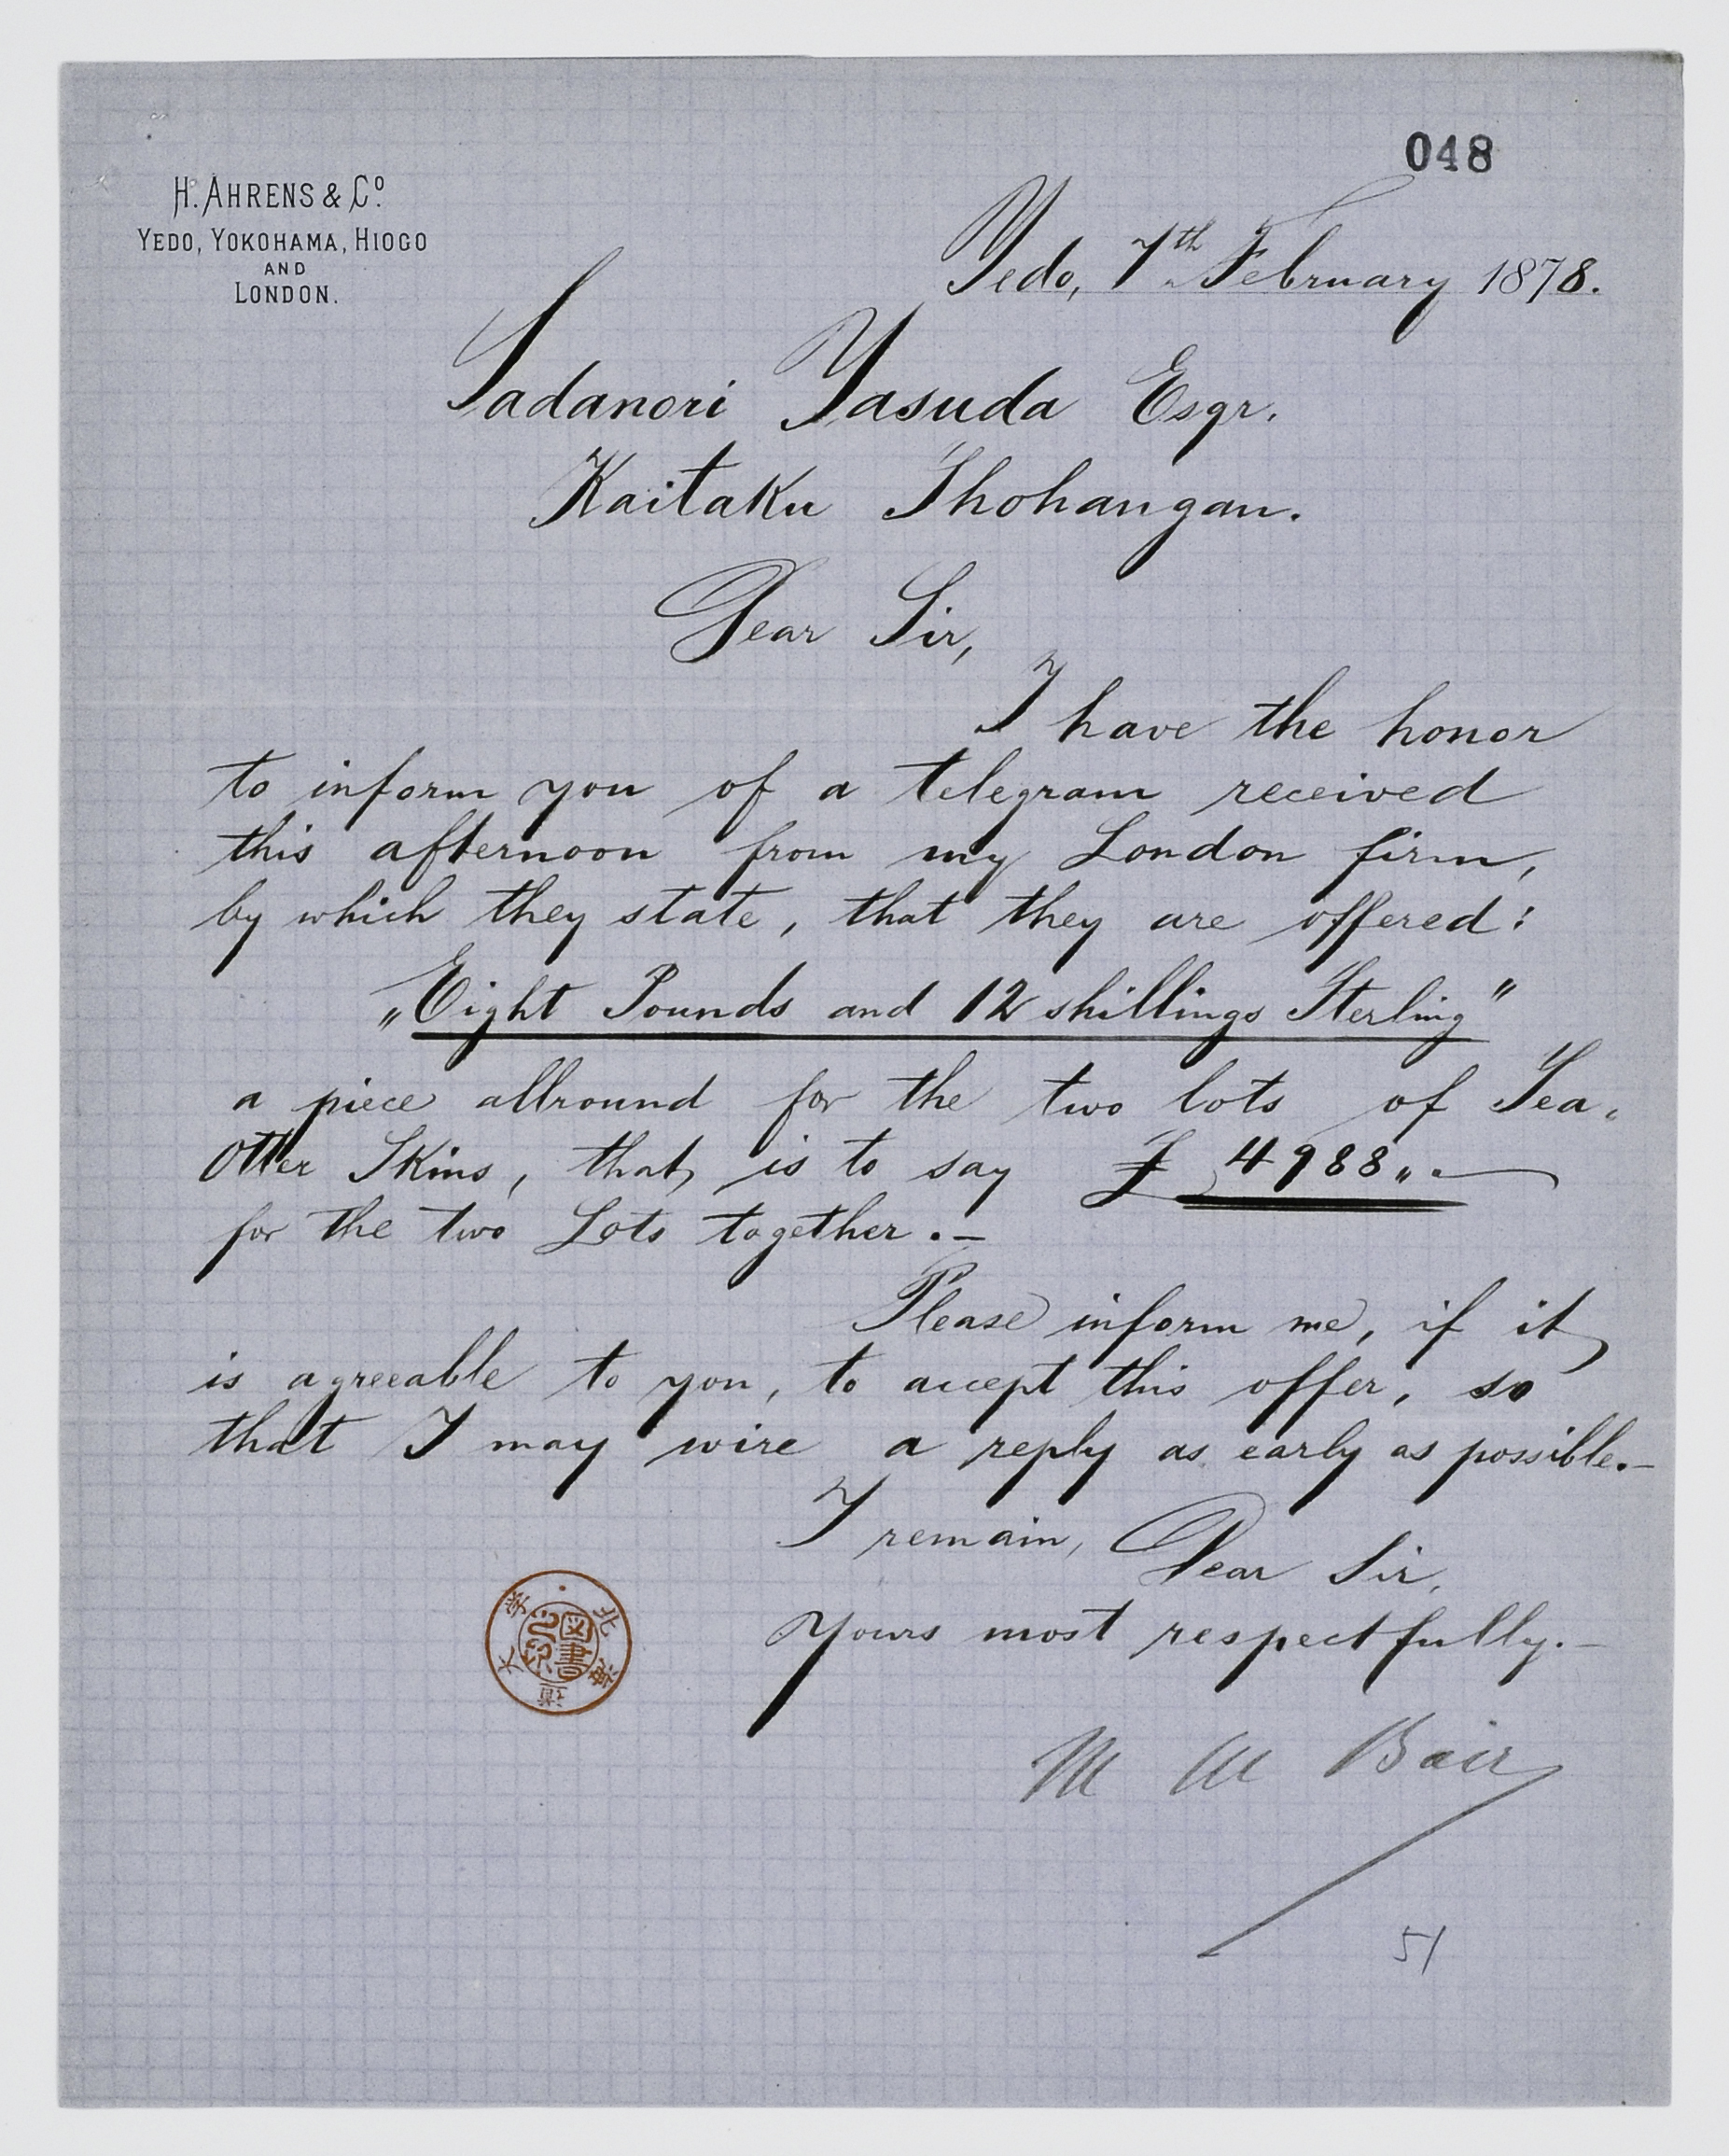 048
H. AHRENS & Cº
YEDO, YOKOHAMA, HIOGO
AND
LONDON.
Yedo, 7th February 1878.
Sadanori Yasuda Esqr.
Kaitaku Shohangan.
Dear Sir,
I have the honor
to inform you of a telegram received
this afternoon from my London firm,
by which they state, that they are offered:
„Eight Pounds and 12 shillings Sterling"
a piece allround for the two lots of Sea-
Otter Skins, that is to say £ 4988„.—
for the two Lots together.—
Please inform me, if it
is agreeable to you, to accept this offer, so
that I may wire a reply as early as possible.—
I remain, Dear Sir,
Yours most respectfully.—
M M Bair
北海道大学
図書
51